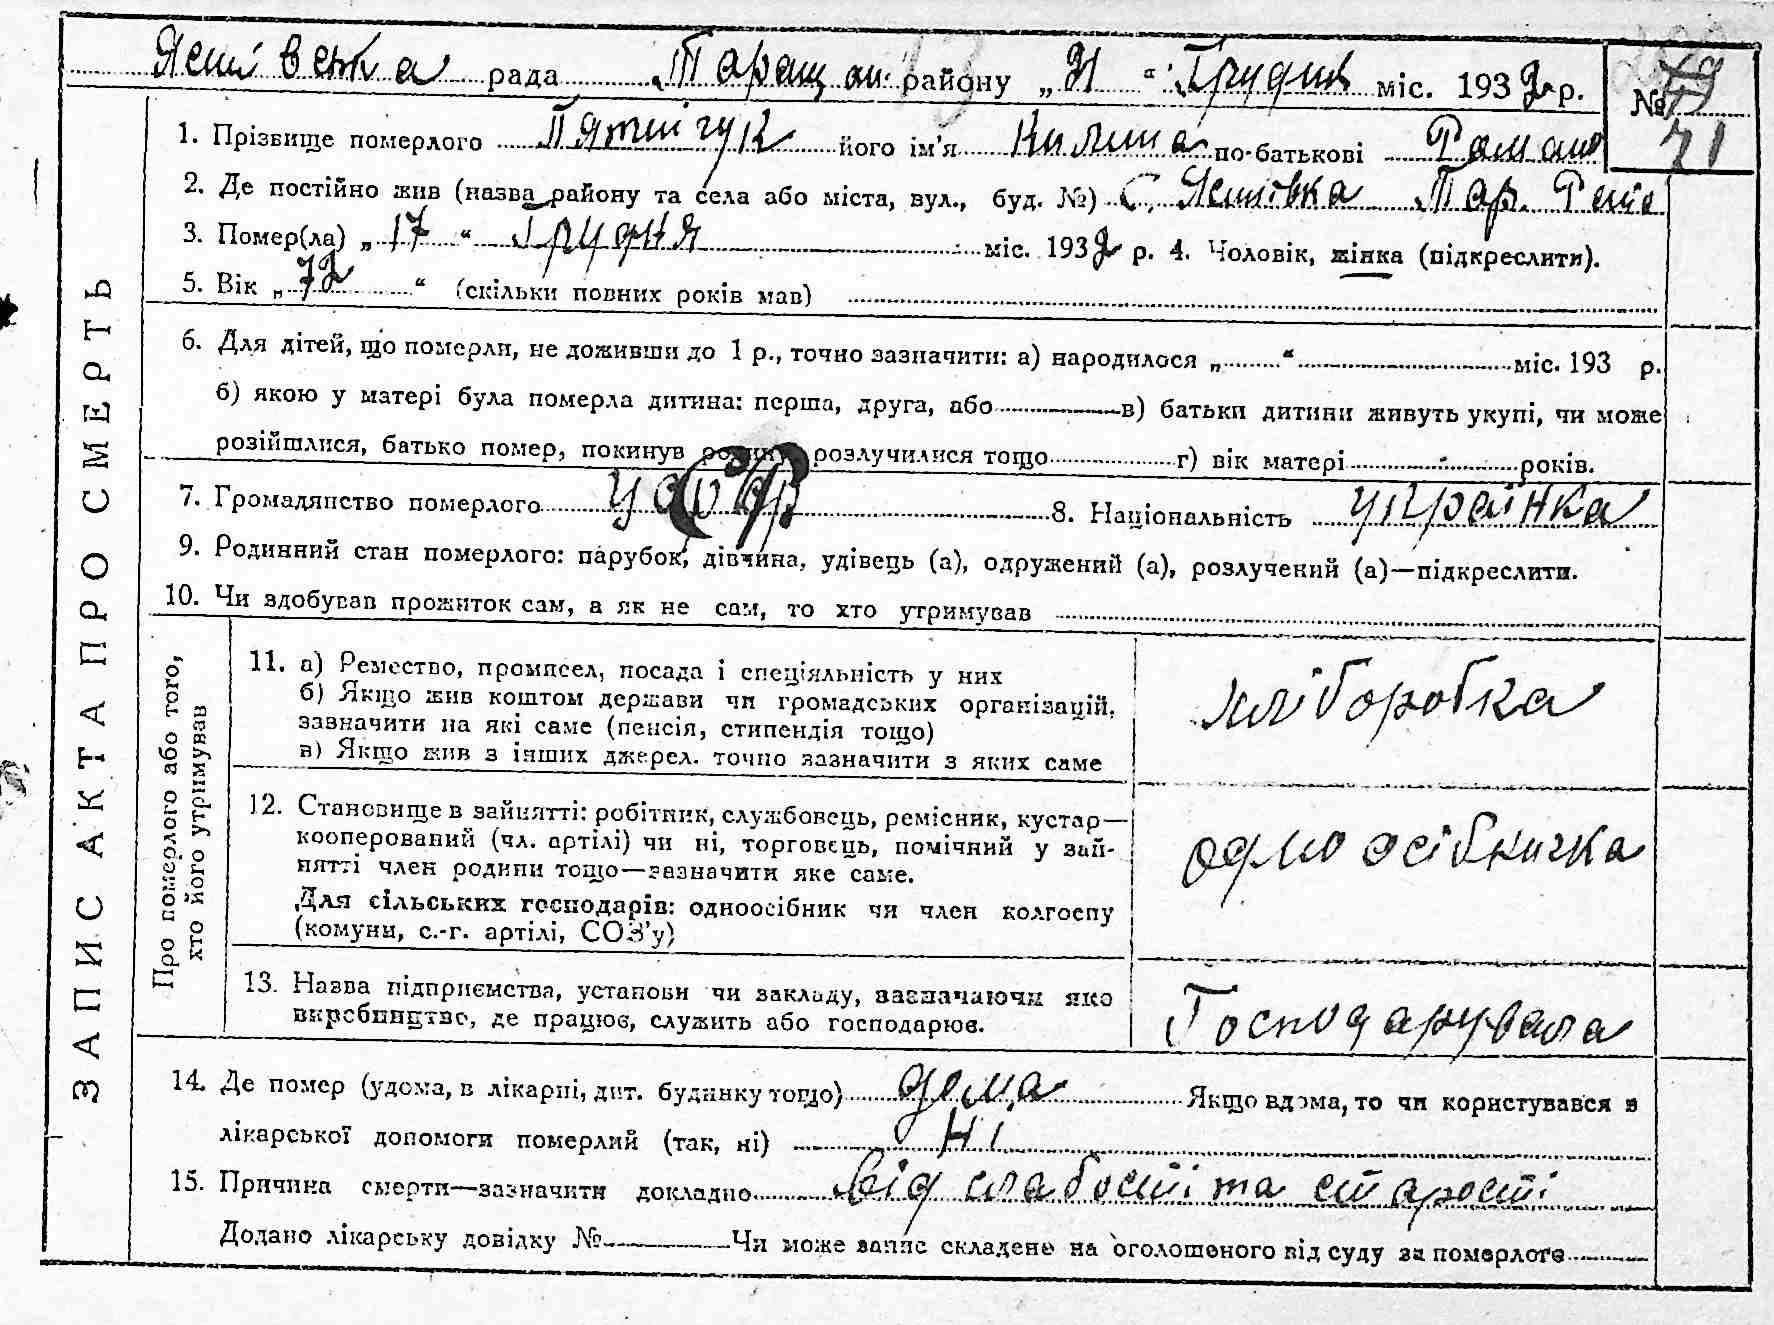 рада Таращан. району „ 21 “ Грудня міс. 1932 р.
№
71
1. Прізвище померлого Пятнічук його ім'я Килина по-батькові Роман
2. Де постійно жив (назва району та села або міста, вул., буд. №) С. Яснівка Тар. Рейо
3. Помер(ла) „ 17 “ Грудня міс. 1932 р. 4. Чоловік, жінка (підкреслити).
5. Вік „ 72 “ (скільки повних років мав)
6. Для дітей, що померли, не доживши до 1 р., точно зазначити: а) народилося „ “ міс. 193 р.
б) якою у матері була померла дитина: перша, друга, або в) батьки дитини живуть укупі, чи може
розійшлися, батько помер, покинув родину розлучилися тощо г) вік матері років.
7. Громадянство померлого 8. Національність українка
9. Родинний стан померлого: парубок, дівчина, удівець (а), одружений (а), розлучений (а)—підкреслити.
10. Чи здобував прожиток сам, а як не сам, то хто утримував
ЗАПИС АКТА ПРО СМЕРТЬ
Про померлого або того,
хто його утримував
11. а) Ремество, промисел, посада і спеціяльність у них
б) Якщо жив коштом держави чи громадських організацій,
зазначити на які саме (пенсія, стипендія тощо)
в) Якщо жив з інших джерел. точно зазначити з яких саме
хліборобка
12. Становище в зайнятті: робітник, службовець, ремісник, кустар—
кооперований (чл. артілі) чи ні, торговець, помічний у зай-
нятті член родини тощо—зазначити яке саме.
Для сільських господарів: одноосібник чи член колгоспу
(комуни, с.-г. артілі, СОЗ'у)
одноосібничка
13. Назва підприємства, установи чи закладу, зазначаючи яко
виробництво, де працює, служить або господарює.
Господарувала
14. Де помер (удома, в лікарні, дит. будинку тощо) дома Якщо вдома, то чи користувався з
лікарської допомоги померлий (так, ні) Ні
15. Причина смерти—зазначити докладно від слабості та старості
Додано лікарську довідку № Чи може запис складено на оголошеного від суду за померлого